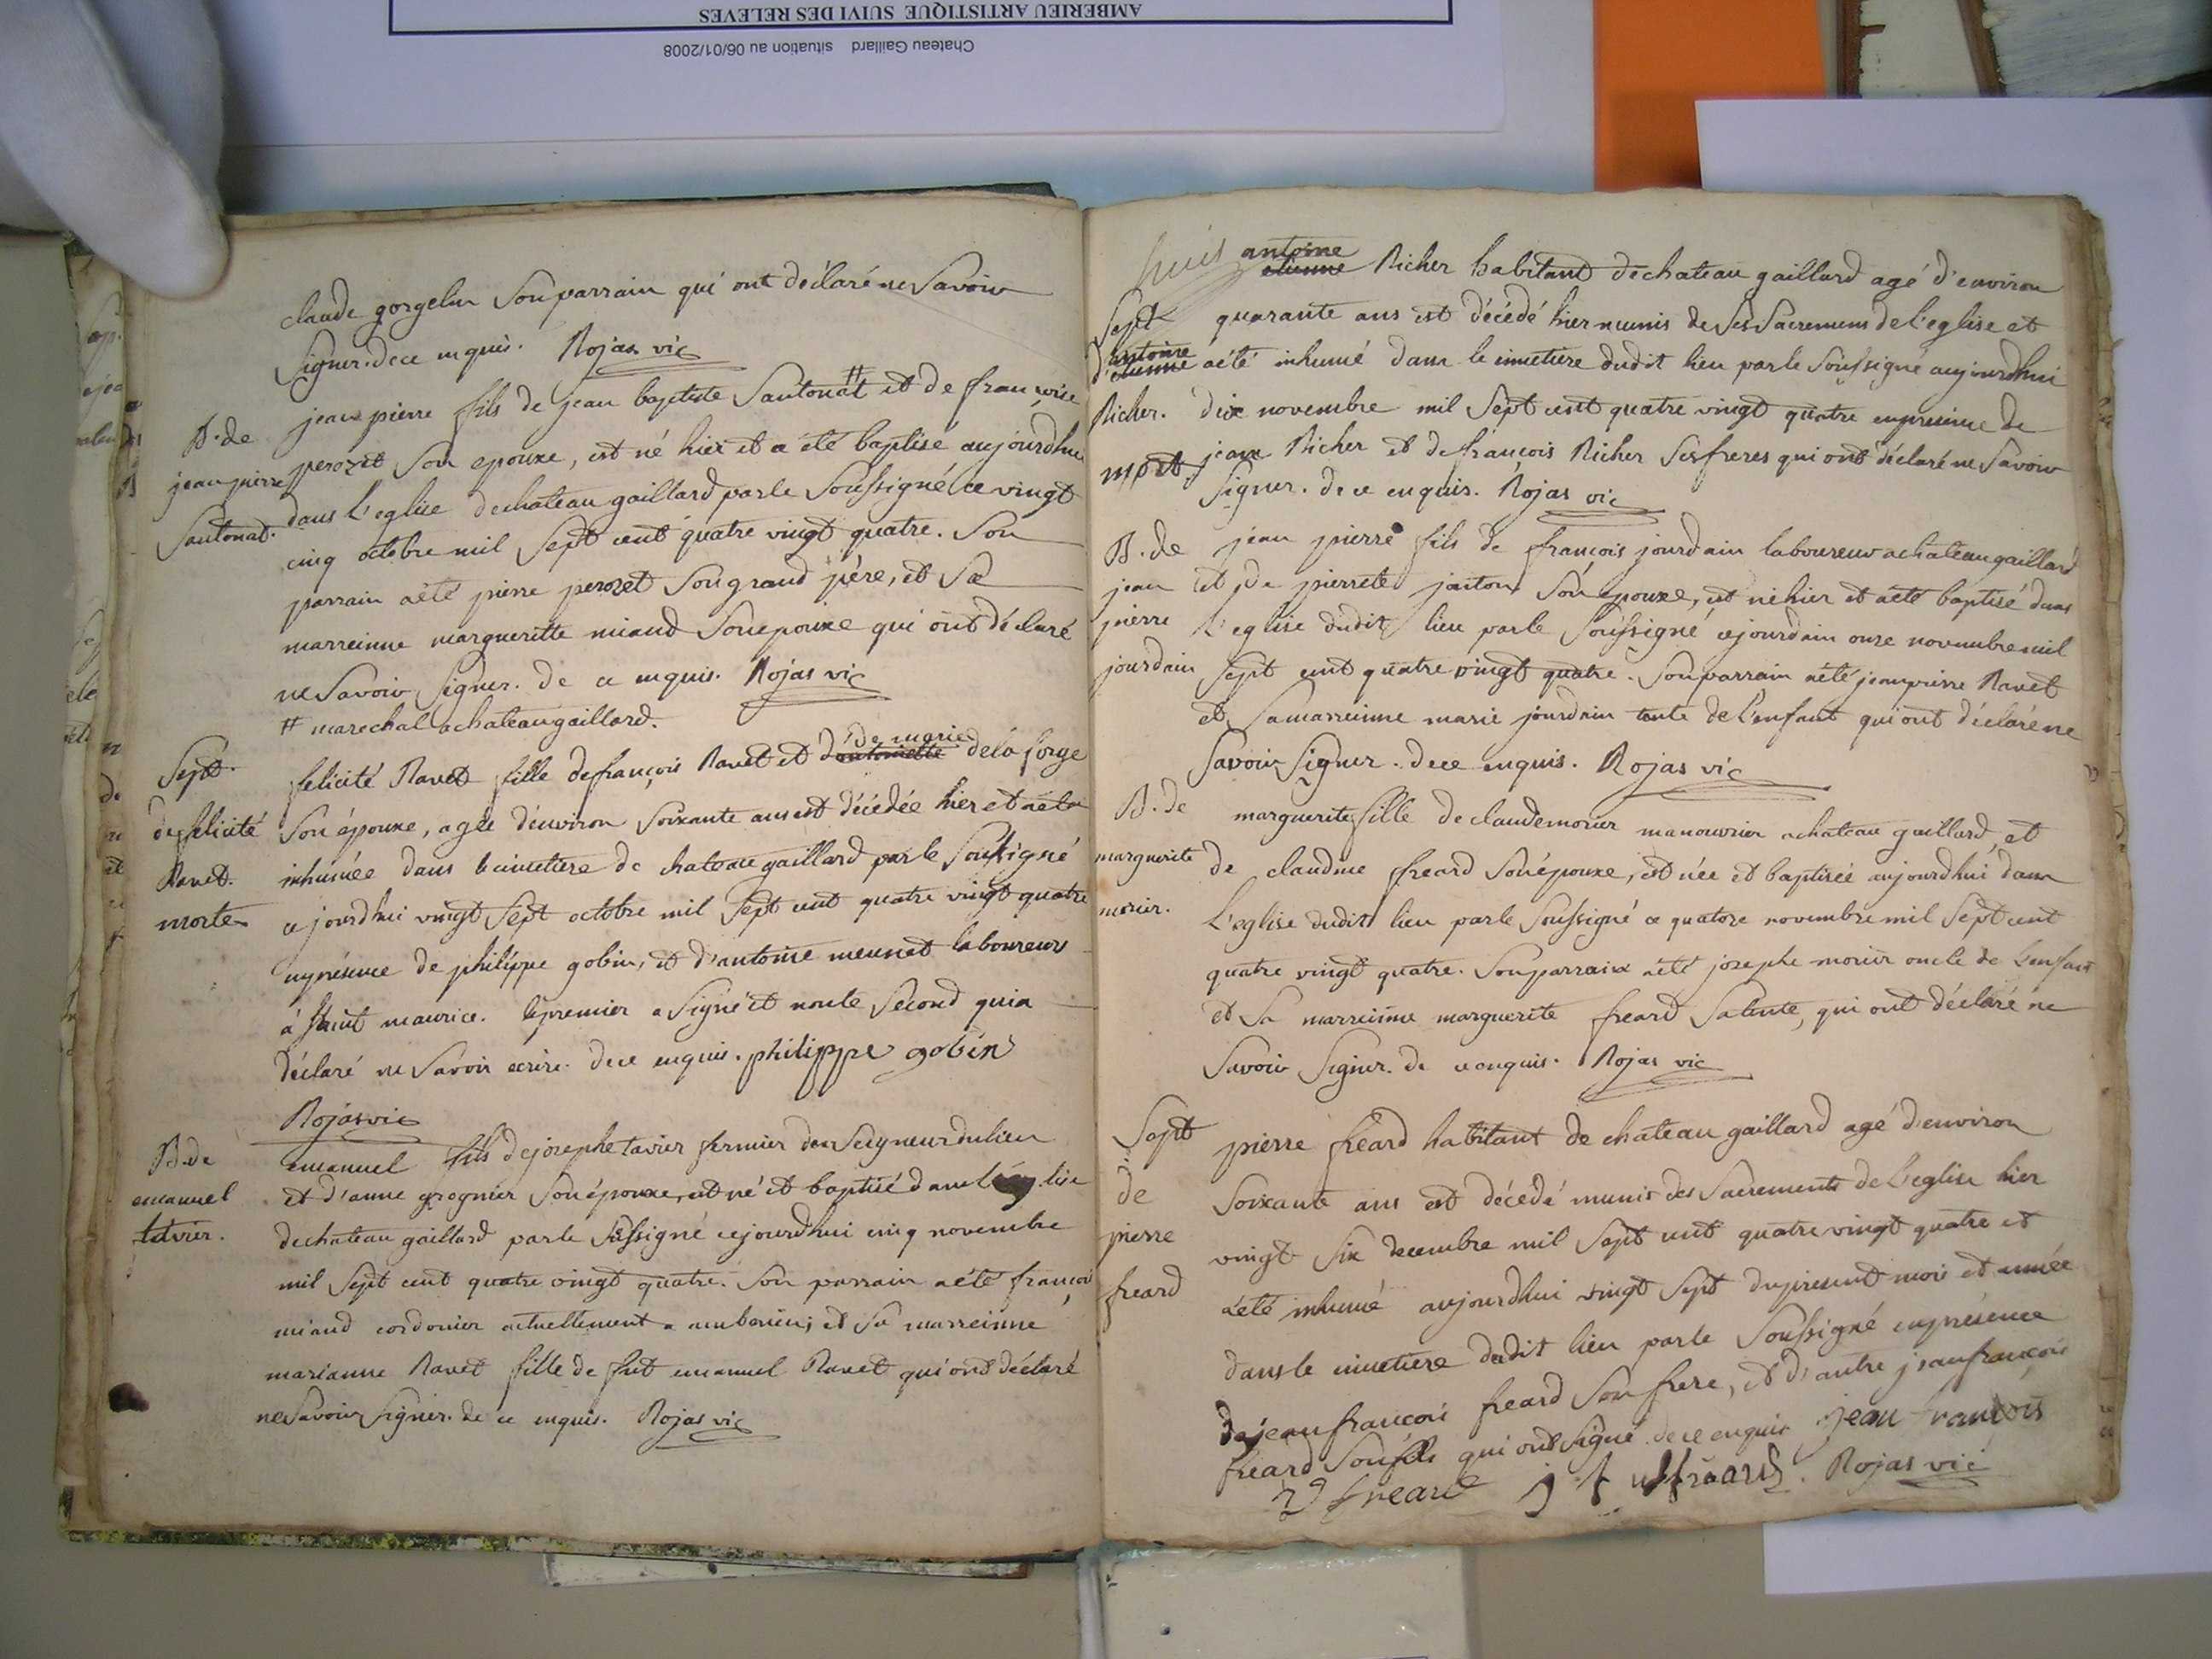 AMBERIEU ARTISTIQUE SUIVI DES RELEVES
Chateau Gaillard situation au 06/01/2008
claude gorgelin Son parrain qui ont déclaré ne Savoir
Signer. de ce enquis. Rojas vic
B. de
jean pierre
Santonat.
jean pierre fils de jean baptiste Santonat # et de françoise
perozet Son epouxe, est né hier et a été baptisé aujourdhui
dans l'eglise de chateau gaillard par le Soussigné ce vingt
cinq octobre mil Sept cent quatre vingt quatre. Son
parrain a été pierre perozet Son grand père, et Sa
marreinne margueritte miand Son epouxe qui ont déclaré
ne Savoir Signer. de ce enquis. Rojas vic
# marechal a chateau gaillard.
Sept.
de felicité
Ravet.
morte
felicité Ravet fille de françois Ravet et de marie d'antoinette de la forge
Son épouxe, agée d'environ Soixante ans est décédée hier et a été
inhumée dans le cimetiere de chateau gaillard par le Soussigné
ce jourdhui vingt Sept octobre mil Sept cent quatre vingt quatre
en présence de philippe gobin, et d'antoine meunet laboureurs
à Saint maurice. le premier a Signé et non le Second qui a
déclaré ne Savoir ecrire. de ce enquis. philippe gobin
Rojas vic
B. de
emanuel
tavier.
emanuel fils de josephe tavier fermier du Seigneur du lieu
et d'anne grognier Son épouxe, est né et baptisé dans l'eglise
de chateau gaillard par le Soussigné cejourdhui cinq novembre
mil Sept cent quatre vingt quatre. Son parrain a été françois
miand cordonier actuellement a amberieu; et Sa marreinne
marianne Ravet fille de fut emanuel Ravet qui ont déclaré
ne Savoir Signer. de ce enquis. Rojas vic
Sept
d'antoine
d'etienne
Richer.
mort
antoine
etienne Richer habitant de chateau gaillard agé d'environ
quarante ans est décédé hier munis de Ses Sacremens de l'eglise et
a été inhumé dans le cimetiere dudit lieu par le Soussigné aujourdhui
dix novembre mil Sept cent quatre vingt quatre en presence de
jean Richer et de françois Richer Ses freres qui ont déclaré ne Savoir
Signer. de ce enquis. Rojas vic
B. de
jean
pierre
jourdain
jean pierre fils de françois jourdain laboureur a chateau gaillard
et de pierrete janton Son épouxe, est né hier et a été baptisé dans
l'eglise dudit lieu par le Soussigné cejourdain onze novembre mil
Sept cent quatre vingt quatre. Son parrain a été jean pierre Ravet
et Sa marreinne marie jourdain tante de l'enfant qui ont déclaré ne
Savoir Signer. de ce enquis. Rojas vic
B. de
marguerite
morier.
marguerite fille de claude morier manouvrier a chateau gaillard, et
de claudine freard Son épouxe, est née et baptisée aujourdhui dans
l'eglise dudit lieu par le Soussigné ce quatorze novembre mil Sept cent
quatre vingt quatre. Son parrain a été josephe morier oncle de l'enfant
et Sa marreinne marguerite freard Sa tante, qui ont déclaré ne
Savoir Signer. de ce enquis. Rojas vic
Sept
de
pierre
freard
pierre freard habitant de chateau gaillard agé d'environ
Soixante ans est décédé munis des Sacrements de l'eglise hier
vingt Six decembre mil Sept cent quatre vingt quatre et
a été inhumé aujourdhui vingt Sept du present mois et année
dans le cimetiere dudit lieu par le Soussigné en présence
de jean françois freard Son frere, et d'autre jean françois
freard Son fils qui ont Signé. de ce enquis jean françois
freard j f freard. Rojas vic